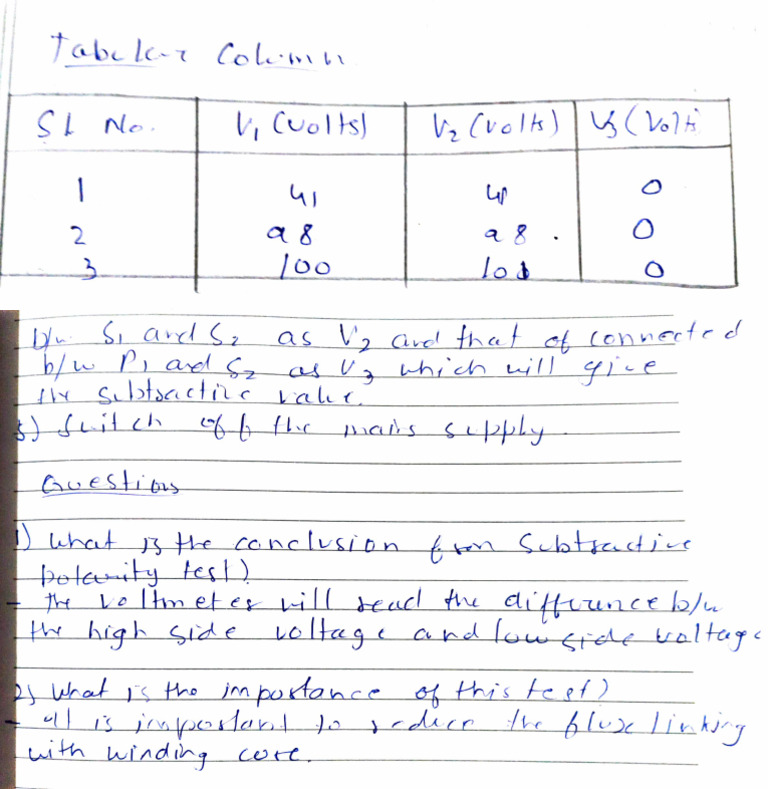 Tabular Column
Sl No. V1 (volts) V2 (volts) V3 (Volts
1 41 41 0
2 98 98 . 0
3 100 101 0
b/w S1 and S2 as V2 and that of connected
b/w P1 and S2 as V3 which will give
the subtractive value.
5) Switch off the mains supply.
Questions
1) What is the conclusion from Subtractive
polarity test?
- the voltmeter will read the difference b/w
the high side voltage and low side voltage
2) What is the importance of this test?
- It is important to reduce the flux linking
with winding core.